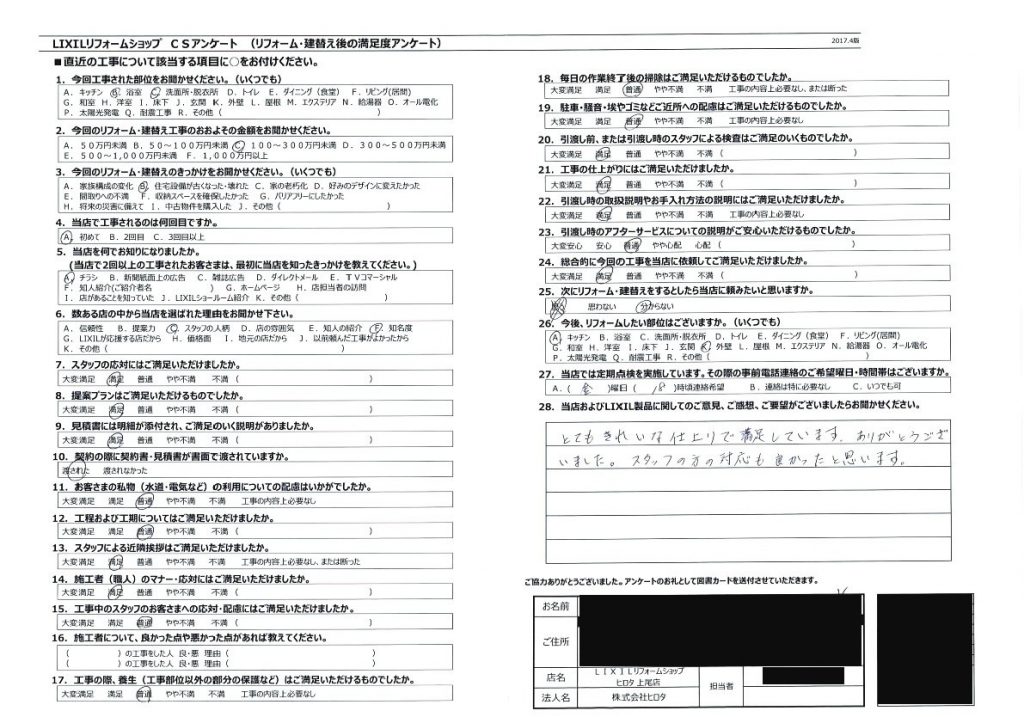 LIXILリフォームショップ CSアンケート （リフォーム・建替え後の満足度アンケート）
2017.4版
■直近の工事について該当する項目に○をお付けください。
1．今回工事された部位をお聞かせください。（いくつでも）
A．キッチン B．浴室 C．洗面所・脱衣所 D．トイレ E．ダイニング（食堂） F．リビング(居間)
G．和室 H．洋室 I．床下 J．玄関 K．外壁 L．屋根 M．エクステリア N．給湯器 O．オール電化
P．太陽光発電 Q．耐震工事 R．その他（ ）
2．今回のリフォーム・建替え工事のおおよその金額をお聞かせください。
A．50万円未満 B．50～100万円未満 C．100～300万円未満 D．300～500万円未満
E．500～1,000万円未満 F．1,000万円以上
3．今回のリフォーム・建替えのきっかけをお聞かせください。（いくつでも）
A．家族構成の変化 B．住宅設備が古くなった・壊れた C．家の老朽化 D．好みのデザインに変えたかった
E．間取りへの不満 F．収納スペースを確保したかった G．バリアフリーにしたかった
H．将来の災害に備えて I．中古物件を購入した J．その他（ ）
4．当店で工事されるのは何回目ですか。
A．初めて B．2回目 C．3回目以上
5．当店を何でお知りになりましたか。
(当店で2回以上の工事されたお客さまは、最初に当店を知ったきっかけを教えてください。)
A．チラシ B．新聞紙面上の広告 C．雑誌広告 D．ダイレクトメール E．TVコマーシャル
F．知人紹介(ご紹介者名 ) G．ホームページ H．店担当者の訪問
I．店があることを知っていた J．LIXILショールーム紹介 K．その他（ ）
6．数ある店の中から当店を選ばれた理由をお聞かせ下さい。
A．信頼性 B．提案力 C．スタッフの人柄 D．店の雰囲気 E．知人の紹介 F．知名度
G．LIXILが応援する店だから H．価格面 I．地元の店だから J．以前頼んだ工事がよかったから
K．その他（ ）
7．スタッフの応対にはご満足いただけましたか。
大変満足 満足 普通 やや不満 不満（ ）
8．提案プランはご満足いただけるものでしたか。
大変満足 満足 普通 やや不満 不満（ ）
9．見積書には明細が添付され、ご満足のいく説明がありましたか。
大変満足 満足 普通 やや不満 不満（ ）
10．契約の際に契約書・見積書が書面で渡されていますか。
渡された 渡されなかった
11．お客さまの私物（水道・電気など）の利用についての配慮はいかがでしたか。
大変満足 満足 普通 やや不満 不満 工事の内容上必要なし
12．工程および工期についてはご満足いただけましたか。
大変満足 満足 普通 やや不満 不満（ ）
13．スタッフによる近隣挨拶はご満足いただけましたか。
大変満足 満足 普通 やや不満 不満 工事の内容上必要なし、または断った
14．施工者（職人）のマナー・応対にはご満足いただけましたか。
大変満足 満足 普通 やや不満 不満（ ）
15．工事中のスタッフのお客さまへの応対・配慮にはご満足いただけましたか。
大変満足 満足 普通 やや不満 不満（ ）
16．施工者について、良かった点や悪かった点があれば教えてください。
（ ）の工事をした人 良・悪 理由（ ）
（ ）の工事をした人 良・悪 理由（ ）
17．工事の際、養生（工事部位以外の部分の保護など）はご満足いただけるものでしたか。
大変満足 満足 普通 やや不満 不満 工事の内容上必要なし
18．毎日の作業終了後の掃除はご満足いただけるものでしたか。
大変満足 満足 普通 やや不満 不満 工事の内容上必要なし、または断った
19．駐車・騒音・埃やゴミなどご近所への配慮はご満足いただけるものでしたか。
大変満足 満足 普通 やや不満 不満 工事の内容上必要なし
20．引渡し前、または引渡し時のスタッフによる検査はご満足のいくものでしたか。
大変満足 満足 普通 やや不満 不満（ ）
21．工事の仕上がりにはご満足いただけましたか。
大変満足 満足 普通 やや不満 不満（ ）
22．引渡し時の取扱説明やお手入れ方法の説明にはご満足いただけましたか。
大変満足 満足 普通 やや不満 不満 工事の内容上必要なし
23．引渡し時のアフターサービスについての説明がご安心いただけるものでしたか。
大変安心 安心 普通 やや心配 心配（ ）
24．総合的に今回の工事を当店に依頼してご満足いただけましたか。
大変満足 満足 普通 やや不満 不満（ ）
25．次にリフォーム・建替えをするとしたら当店に頼みたいと思いますか。
思わない 分からない
26．今後、リフォームしたい部位はございますか。（いくつでも）
A．キッチン B．浴室 C．洗面所・脱衣所 D．トイレ E．ダイニング（食堂） F．リビング(居間)
G．和室 H．洋室 I．床下 J．玄関 K．外壁 L．屋根 M．エクステリア N．給湯器 O．オール電化
P．太陽光発電 Q．耐震工事 R．その他（ ）
27．当店では定期点検を実施しています。その際の事前電話連絡のご希望曜日・時間帯はございますか。
A．（ 金 ）曜日（ 18 ）時頃連絡希望 B．連絡は特に必要なし C．いつでも可
28．当店およびLIXIL製品に関してのご意見、ご感想、ご要望がございましたらお聞かせください。
とてもきれいな仕上りで満足しています。ありがとうござ
いました。スタッフの方の対応も良かったと思います。
ご協力ありがとうございました。アンケートのお礼として図書カードを送付させていただきます。
お名前
ご住所
店名 LIXILリフォームショップ ヒロタ 上尾店 担当者
法人名 株式会社ヒロタ